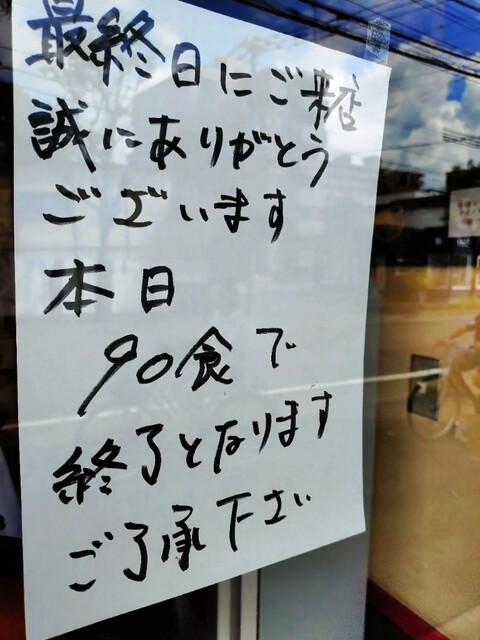 最終日にご来店
誠にありがとう
ございます
本日
90食で
終了となります
ご了承下さい